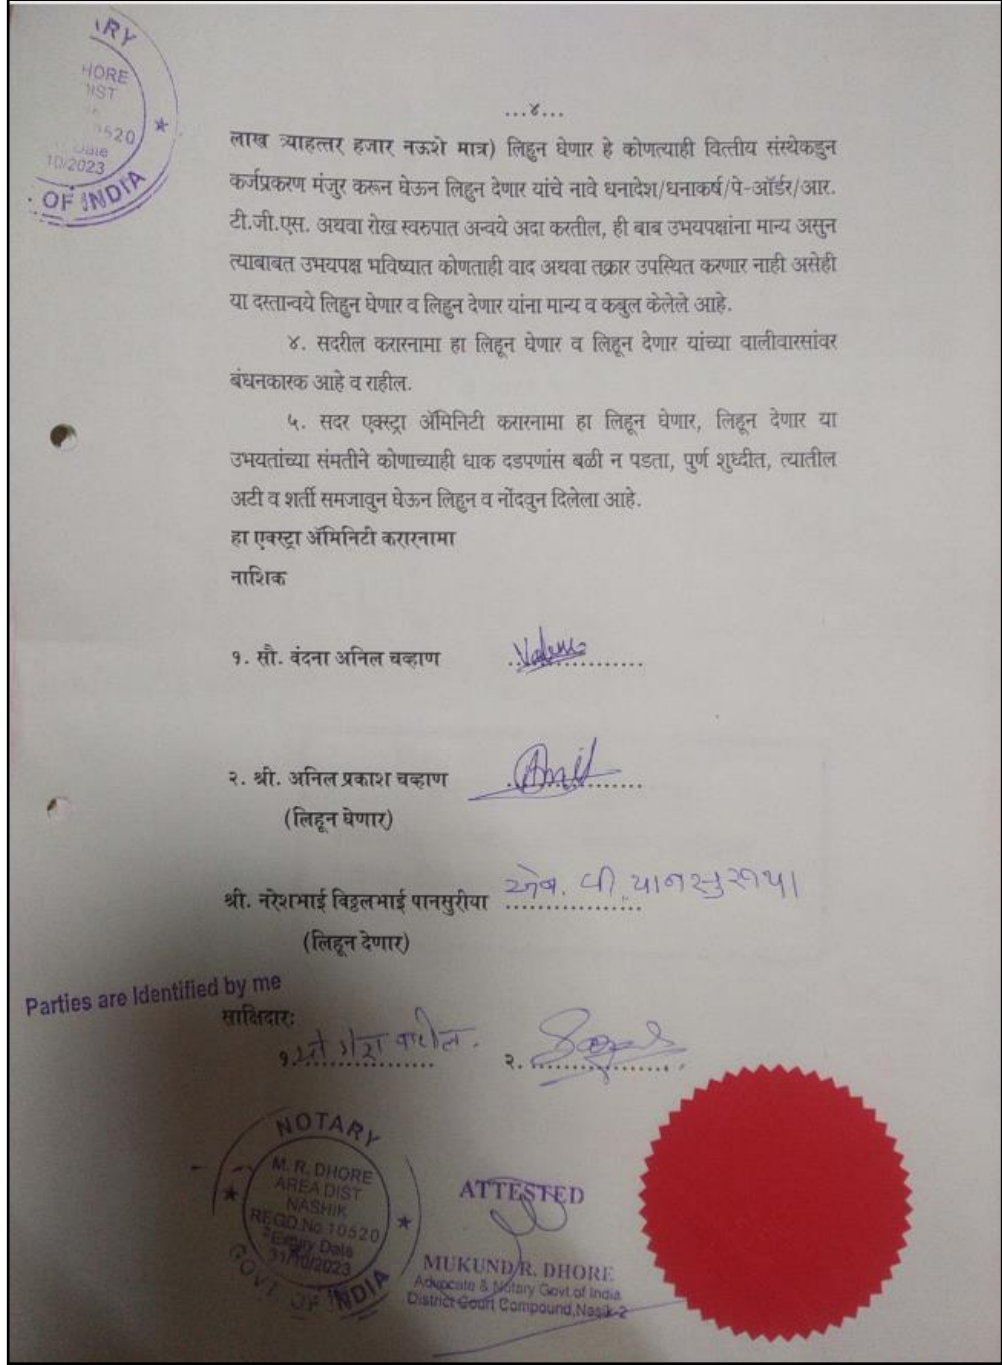 RY
HORE
DIST
10520
Date
10/2023
OF INDIA
...४...
लाख त्र्याहत्तर हजार नऊशे मात्र) लिहुन घेणार हे कोणत्याही वित्तीय संस्थेकडुन
कर्जप्रकरण मंजुर करून घेऊन लिहुन देणार यांचे नावे धनादेश/धनाकर्ष/पे-ऑर्डर/आर.
टी.जी.एस. अथवा रोख स्वरुपात अन्वये अदा करतील, ही बाब उभयपक्षांना मान्य असुन
त्याबाबत उभयपक्ष भविष्यात कोणताही वाद अथवा तक्रार उपस्थित करणार नाही असेही
या दस्तान्वये लिहुन घेणार व लिहुन देणार यांना मान्य व कबुल केलेले आहे.
४. सदरील करारनामा हा लिहून घेणार व लिहून देणार यांच्या वालीवारसांवर
बंधनकारक आहे व राहील.
५. सदर एक्स्ट्रा ॲमिनिटी करारनामा हा लिहून घेणार, लिहून देणार या
उभयतांच्या संमतीने कोणाच्याही धाक दडपणांस बळी न पडता, पुर्ण शुध्दीत, त्यातील
अटी व शर्ती समजावुन घेऊन लिहुन व नोंदवुन दिलेला आहे.
हा एक्स्ट्रा ॲमिनिटी करारनामा
नाशिक
१. सौ. वंदना अनिल चव्हाण ..................
२. श्री. अनिल प्रकाश चव्हाण Anil ..................
(लिहून घेणार)
श्री. नरेशभाई विठ्ठलभाई पानसुरीया ..................
(लिहून देणार)
Parties are Identified by me
साक्षिदारः
१. .................. २. ..................
NOTARY
M. R. DHORE
AREA DIST
NASHIK
REGD.No.10520
Expiry Date
31/10/2023
GOVT OF INDIA
ATTESTED
MUKUND R. DHORE
Advocate & Notary Govt of India
District Court Compound, Nasik-2